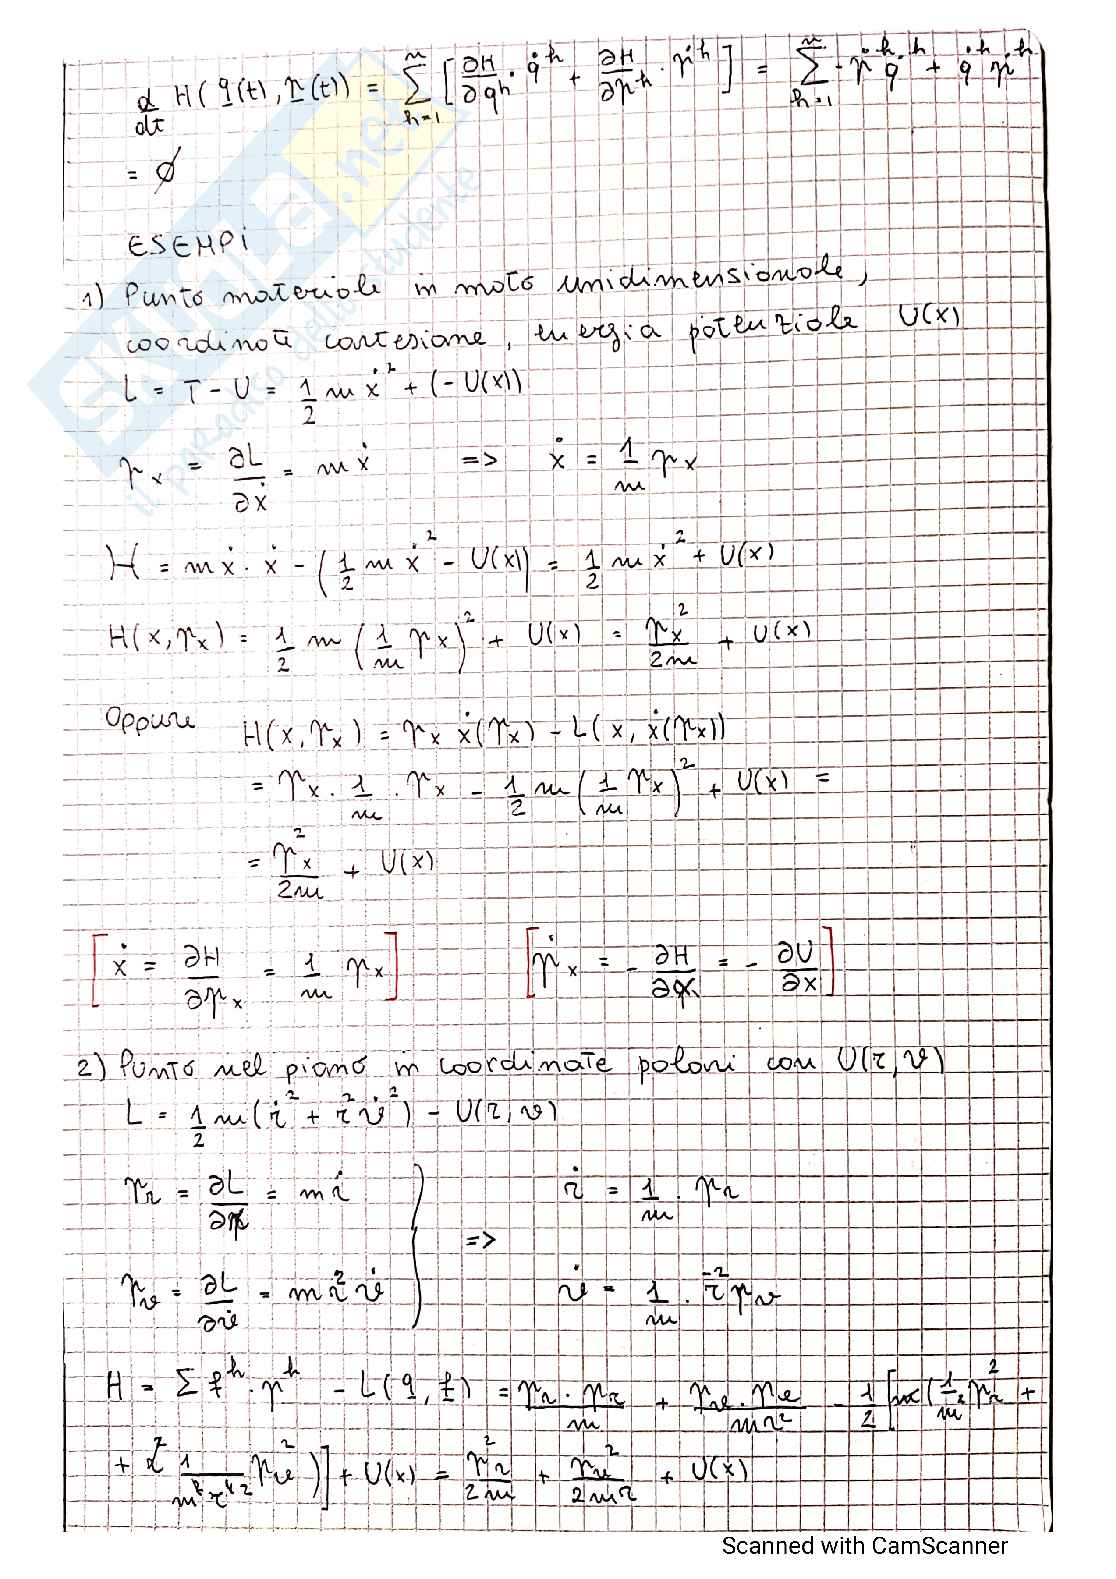 d/dt H(q(t), p(t)) = Σ_{h=1}^{n} [∂H/∂q^h · q̇^h + ∂H/∂p^h · ṗ^h] = Σ_{h=1}^{n} - ṗ^h q̇^h + q̇^h ṗ^h
= ∅
ESEMPI
1) Punto materiale in moto unidimensionale,
coordinate cartesiane, energia potenziale U(x)
L = T - U = 1/2 m ẋ² + (- U(x))
p_x = ∂L/∂ẋ = m ẋ => ẋ = 1/m p_x
H = m ẋ · ẋ - (1/2 m ẋ² - U(x)) = 1/2 m ẋ² + U(x)
H(x, p_x) = 1/2 m (1/m p_x)² + U(x) = p_x²/2m + U(x)
Oppure H(x, p_x) = p_x ẋ(p_x) - L(x, ẋ(p_x))
= p_x · 1/m · p_x - 1/2 m (1/m p_x)² + U(x) =
= p_x²/2m + U(x)
[ẋ = ∂H/∂p_x = 1/m p_x] [ṗ_x = - ∂H/∂x = - ∂U/∂x]
2) Punto nel piano in coordinate polari con U(r, ϑ)
L = 1/2 m (ṙ² + r² ϑ̇²) - U(r, ϑ)
p_r = ∂L/∂ṙ = m ṙ => ṙ = 1/m · p_r
p_ϑ = ∂L/∂ϑ̇ = m r² ϑ̇ ϑ̇ = 1/m · r^-2 p_ϑ
H = Σ ξ^h · p^h - L(q, ξ) = p_r · p_r/m + p_ϑ · p_ϑ/mr² - 1/2 [m (1/m² p_r² +
+ r² 1/m² r⁴ p_ϑ²)] + U(x) = p_r²/2m + p_ϑ²/2mr + U(x)
SKUOLA.net
il paradiso dello studente
Scanned with CamScanner